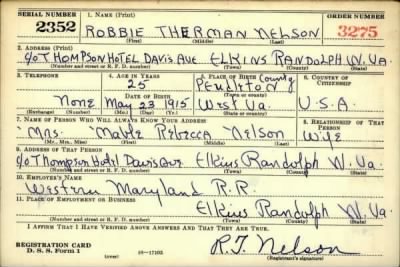 SERIAL NUMBER 1. Name (Print) ORDER NUMBER
2352 ROBBIE THERMAN NELSON 3275
(First) (Middle) (Last)
2. Address (Print)
c/o THOMPSON HOTEL DAVIS AVE ELKINS RANDOLPH W. VA.
(Number and street or R. F. D. number) (Town) (County) (State)
3. Telephone 4. Age in Years 5. Place of Birth 6. Country of Citizenship
25 Pendleton County
None May 23 1915 West Va U.S.A.
(Exchange) (Number) (Mo.) (Day) (Yr.) (State or country)
7. Name of Person Who Will Always Know Your Address 8. Relationship of That Person
Mrs. Rebecca Nelson Wife
(Mr., Mrs., Miss) (First) (Middle) (Last)
9. Address of That Person
c/o Thompson Hotel Davis Ave Elkins Randolph W. Va.
(Number and street or R. F. D. number) (Town) (County) (State)
10. Employer's Name
Western Maryland R.R.
11. Place of Employment or Business
Elkins Randolph W. Va.
(Number and street or R. F. D. number) (Town) (County) (State)
I Affirm That I Have Verified Above Answers and That They Are True.
REGISTRATION CARD
D. S. S. Form 1 16—17105 R.T. Nelson
(Registrant's signature)